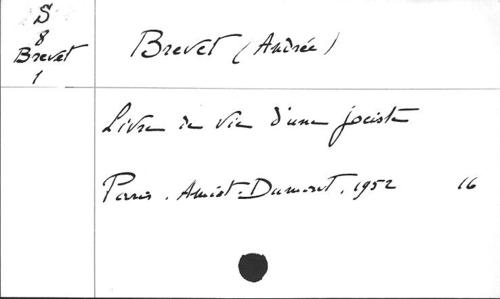 S
8
Brevet
1
Brevet (Andrée)
Livre de vie d'une jociste
Paris. Amiot-Dumont. 1952 16